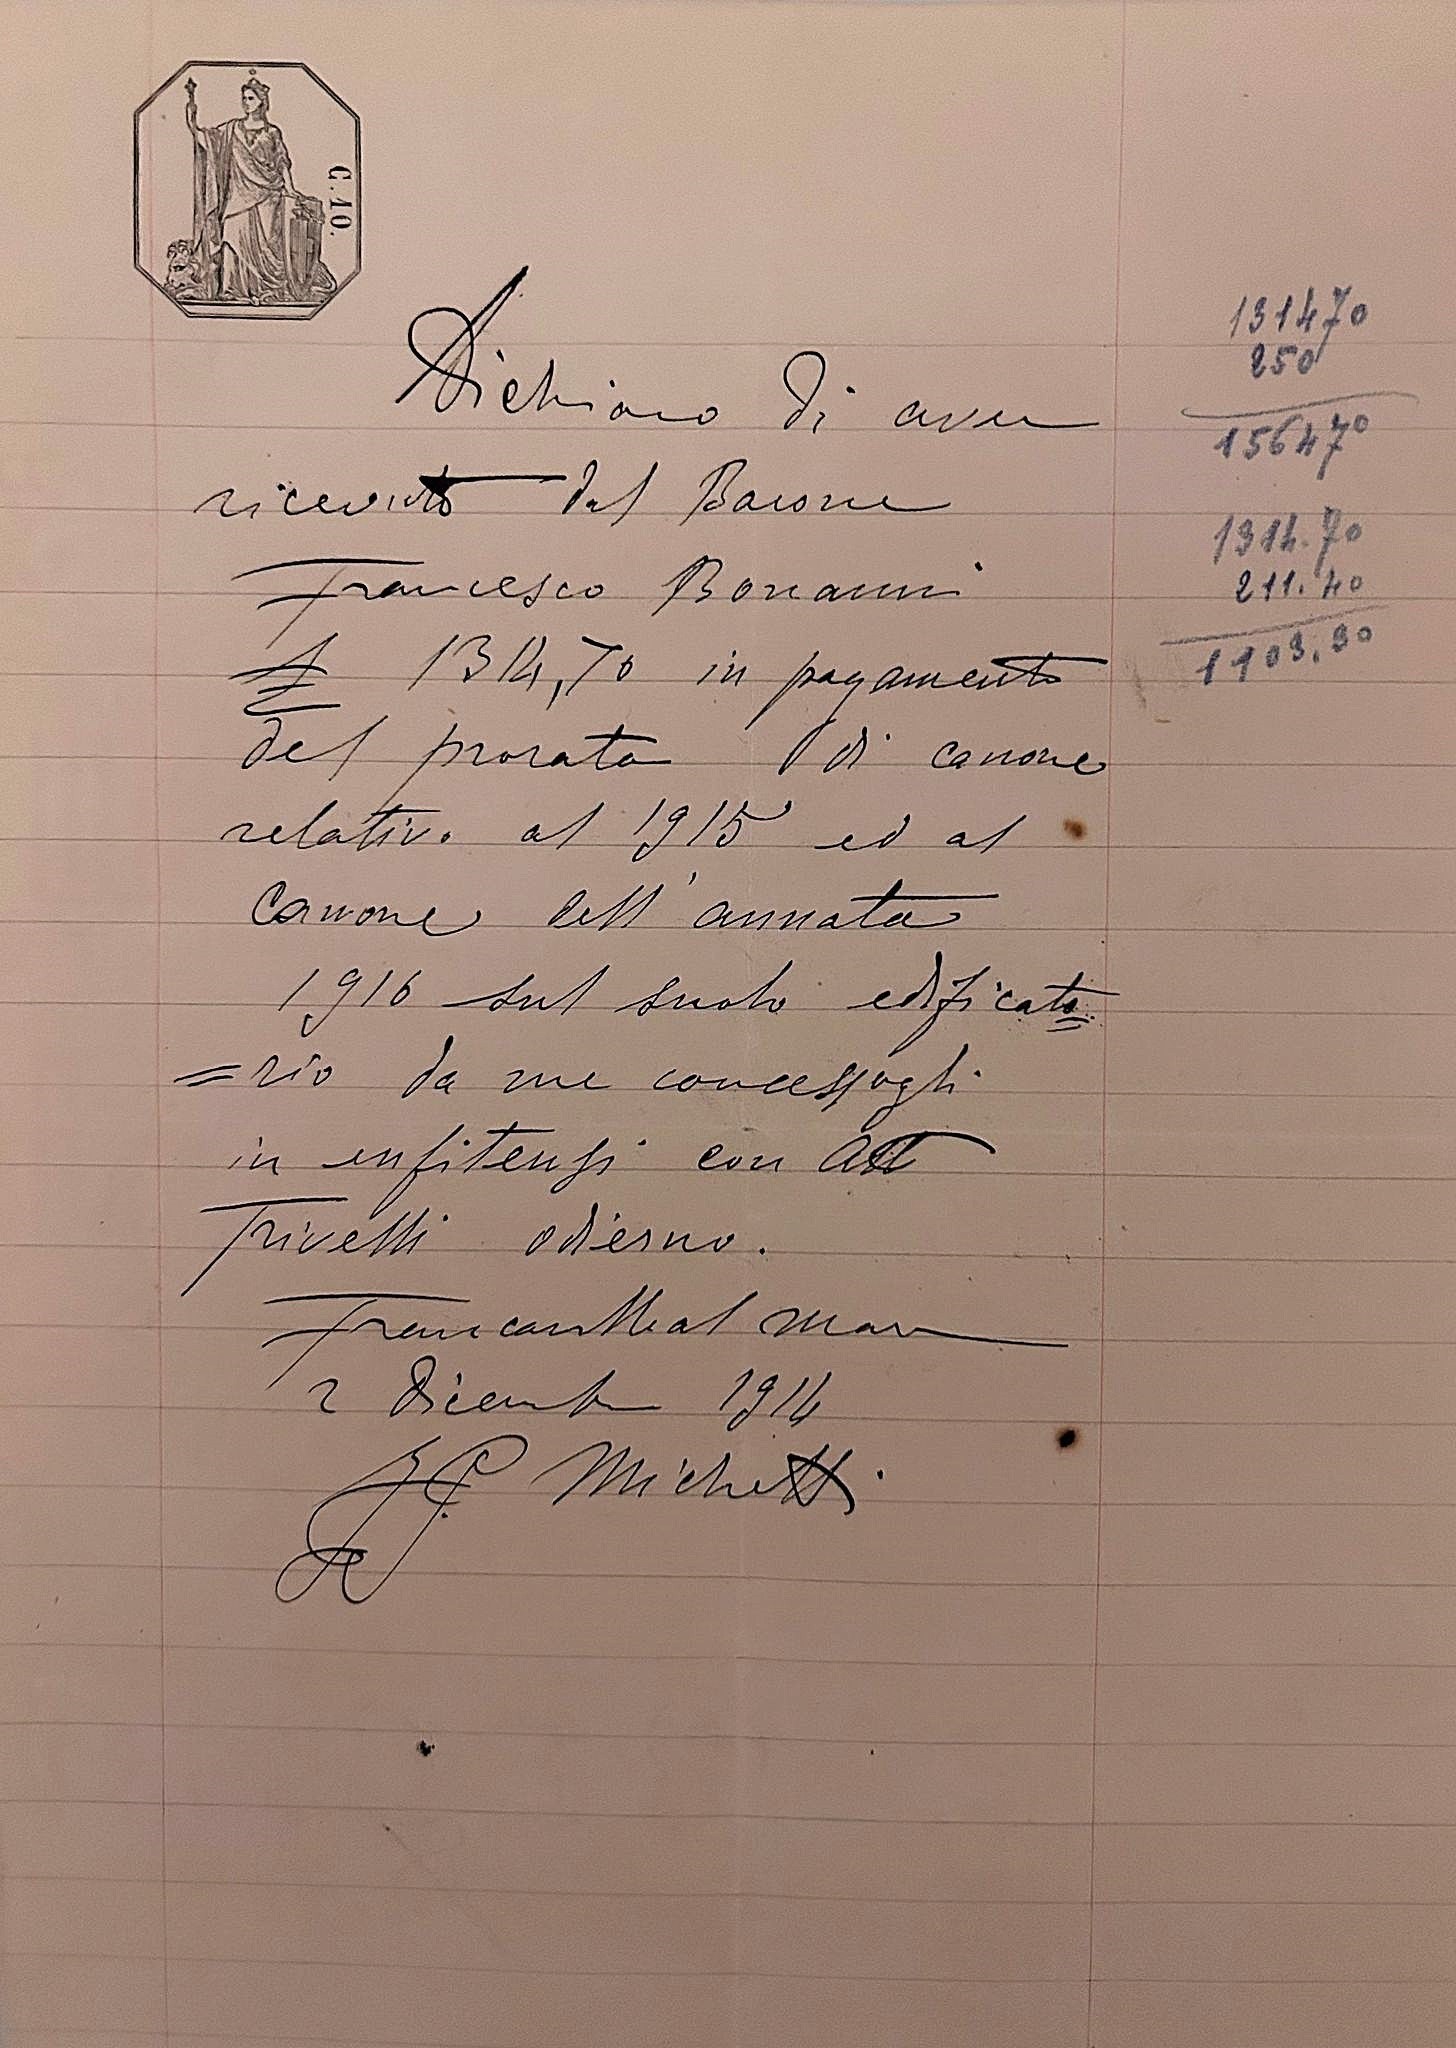 C. 10.
Dichiaro di aver
ricevuto dal Barone
Francesco Bonanni
£ 1314,70 in pagamento
del prorata di canone
relativo al 1915 ed al
Canone dell'annata
1916 sul suolo edificato
=rio da me concessogli
in enfiteusi con Att
Trivelli odierno.
Francavilla al mare
2 dicembre 1914
F. P. Michetti.
131470
250
156470
1314.70
211.40
1103.30